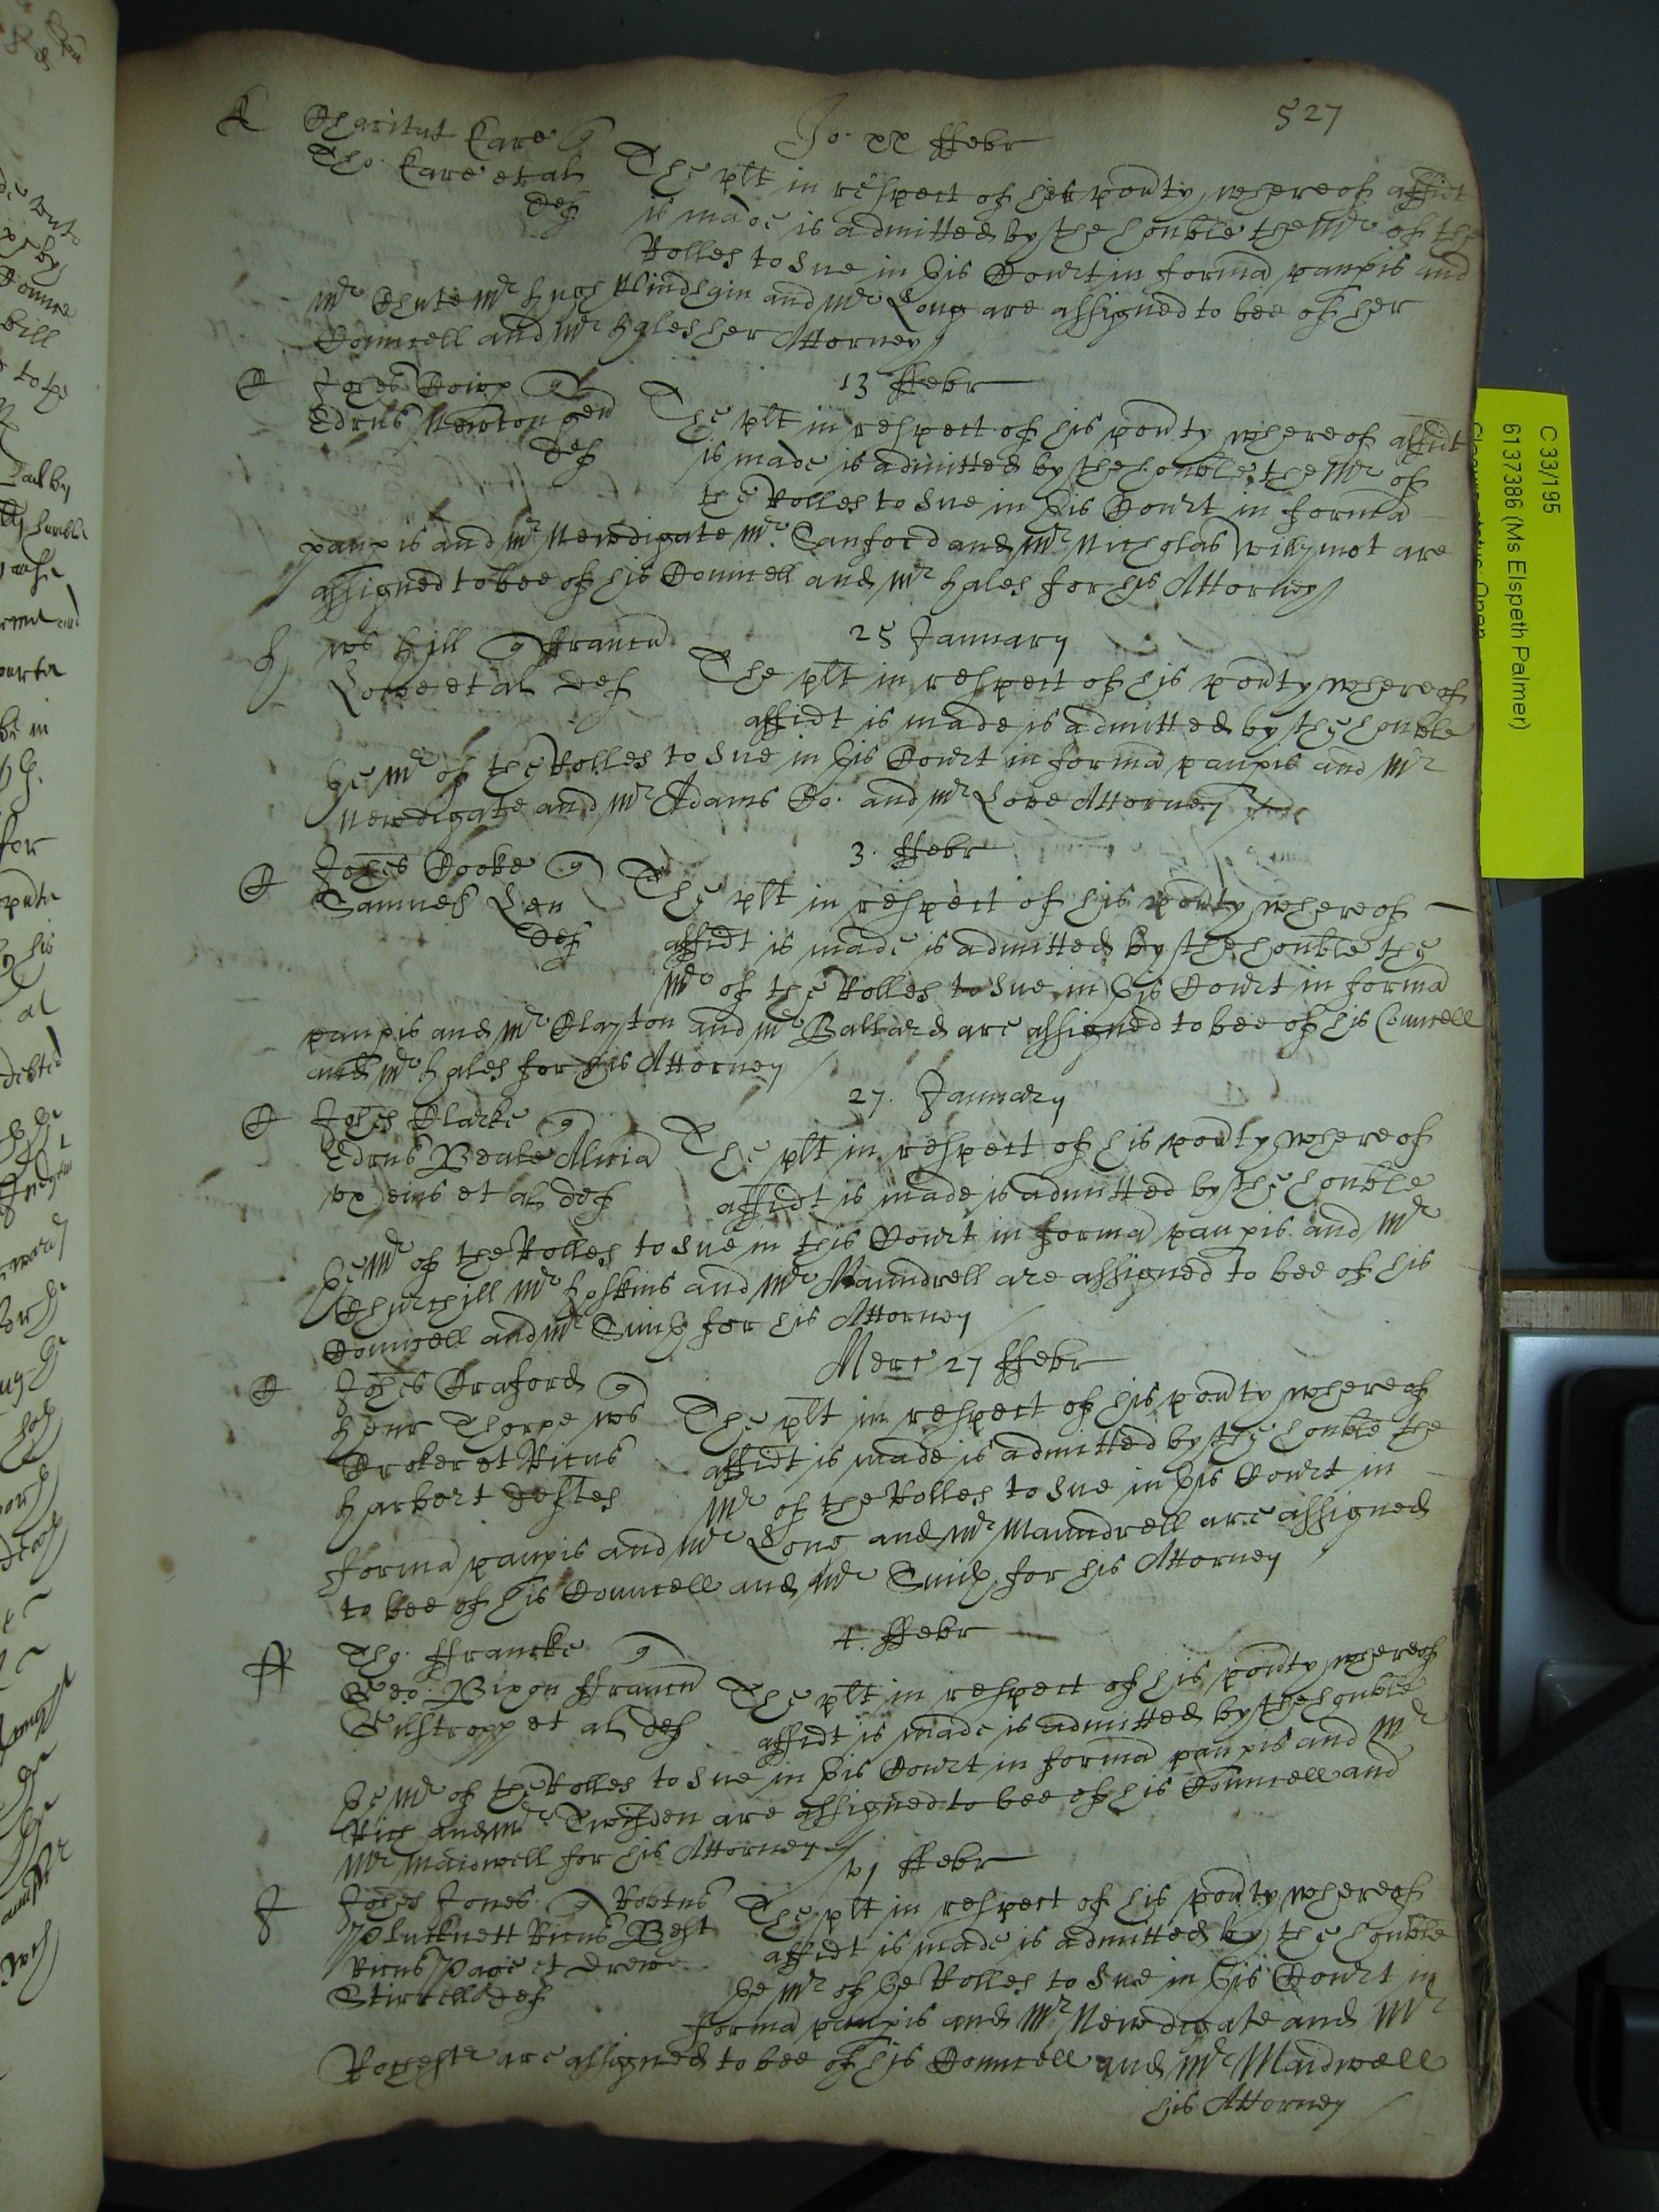 527
K Charitut Kare q
Jo. xx ffebr
Tho. Kare et al
def
The plt in respect of her povty whereof affidt
is made is admitted by the honble the Mr of the
Rolles to sue in this Court in forma paupis and
Mr Chute Mr Hugh Windham and Mr Long are assigned to bee of her
Councell and Mr Hales her Attorney
C Johes q
13 ffebr
Edrus Newton gen
def
The plt in respect of his povty whereof affidt
is made is admitted by the honble the Mr of
the Rolles to sue in this Court in forma
paupis and Mr Newdigate Mr Sanford and Mr Nicholas Willymot are
assigned to bee of his Councell and Mr Hales for his Attorney
H Ws Hill q ffranc
25 January
Lowe et al def
The plt in respect of his povty whereof
affidt is made is admitted by the honble
the Mr of the Rolles to sue in this Court in forma paupis and Mr
Newdigate and Mr Adams Co. and Mr Love Attorney
C Johes Cooke q
3. ffebr
Samuel Len
def
The plt in respect of his povty whereof
affidt is made is admitted by the honble the
Mr of the Rolles to sue in this Court in forma
paupis and Mr Clayton and Mr Ballard are assigned to bee of his Councell
and Mr Hales for his Attorney
27. January
C Johes Clarke q
Edrus Beale Alicia
ux eius et al def
The plt in respect of his povty whereof
affidt is made is admitted by the honble
the Mr of the Rolles to sue in this Court in forma paupis and Mr
Churchill Mr Hoskins and Mr Maundrell are assigned to bee of his
Councell and Mr Smith for his Attorney
Merc 27 ffebr
C Johes Craford q
Henr Thorpe Ws
Croker et Ricus
Harbert deftes
The plt in respect of his povty whereof
affidt is made is admitted by the honble the
Mr of the Rolles to sue in this Court in
forma paupis and Mr Lone and Mr Maundrell are assigned
to bee of his Councell and Mr Smith for his Attorney
4. ffebr
ff Tho. ffrancke q
Geo. Bixon ffranc
Gilstropp et al def
The plt in respect of his povty whereof
affidt is made is admitted by the honble
the Mr of the Rolles to sue in this Court in forma paupis and Mr
Rich and Mr Twisden are assigned to bee of his Councell and
Mr Maidwell for his Attorney
ffebr
J Johes Jones q Robtus
Plucknett Ricus Best
Ricus Page et Drewe
Stirrell def
The plt in respect of his povty whereof
affidt is made is admitted by the honble
the Mr of the Rolles to sue in this Court in
forma paupis and Mr Newdegate and Mr
Rochester are assigned to bee of his Councell and Mr Maidwell
his Attorney
C 33/195
6137386 (Ms Elspeth Palmer)